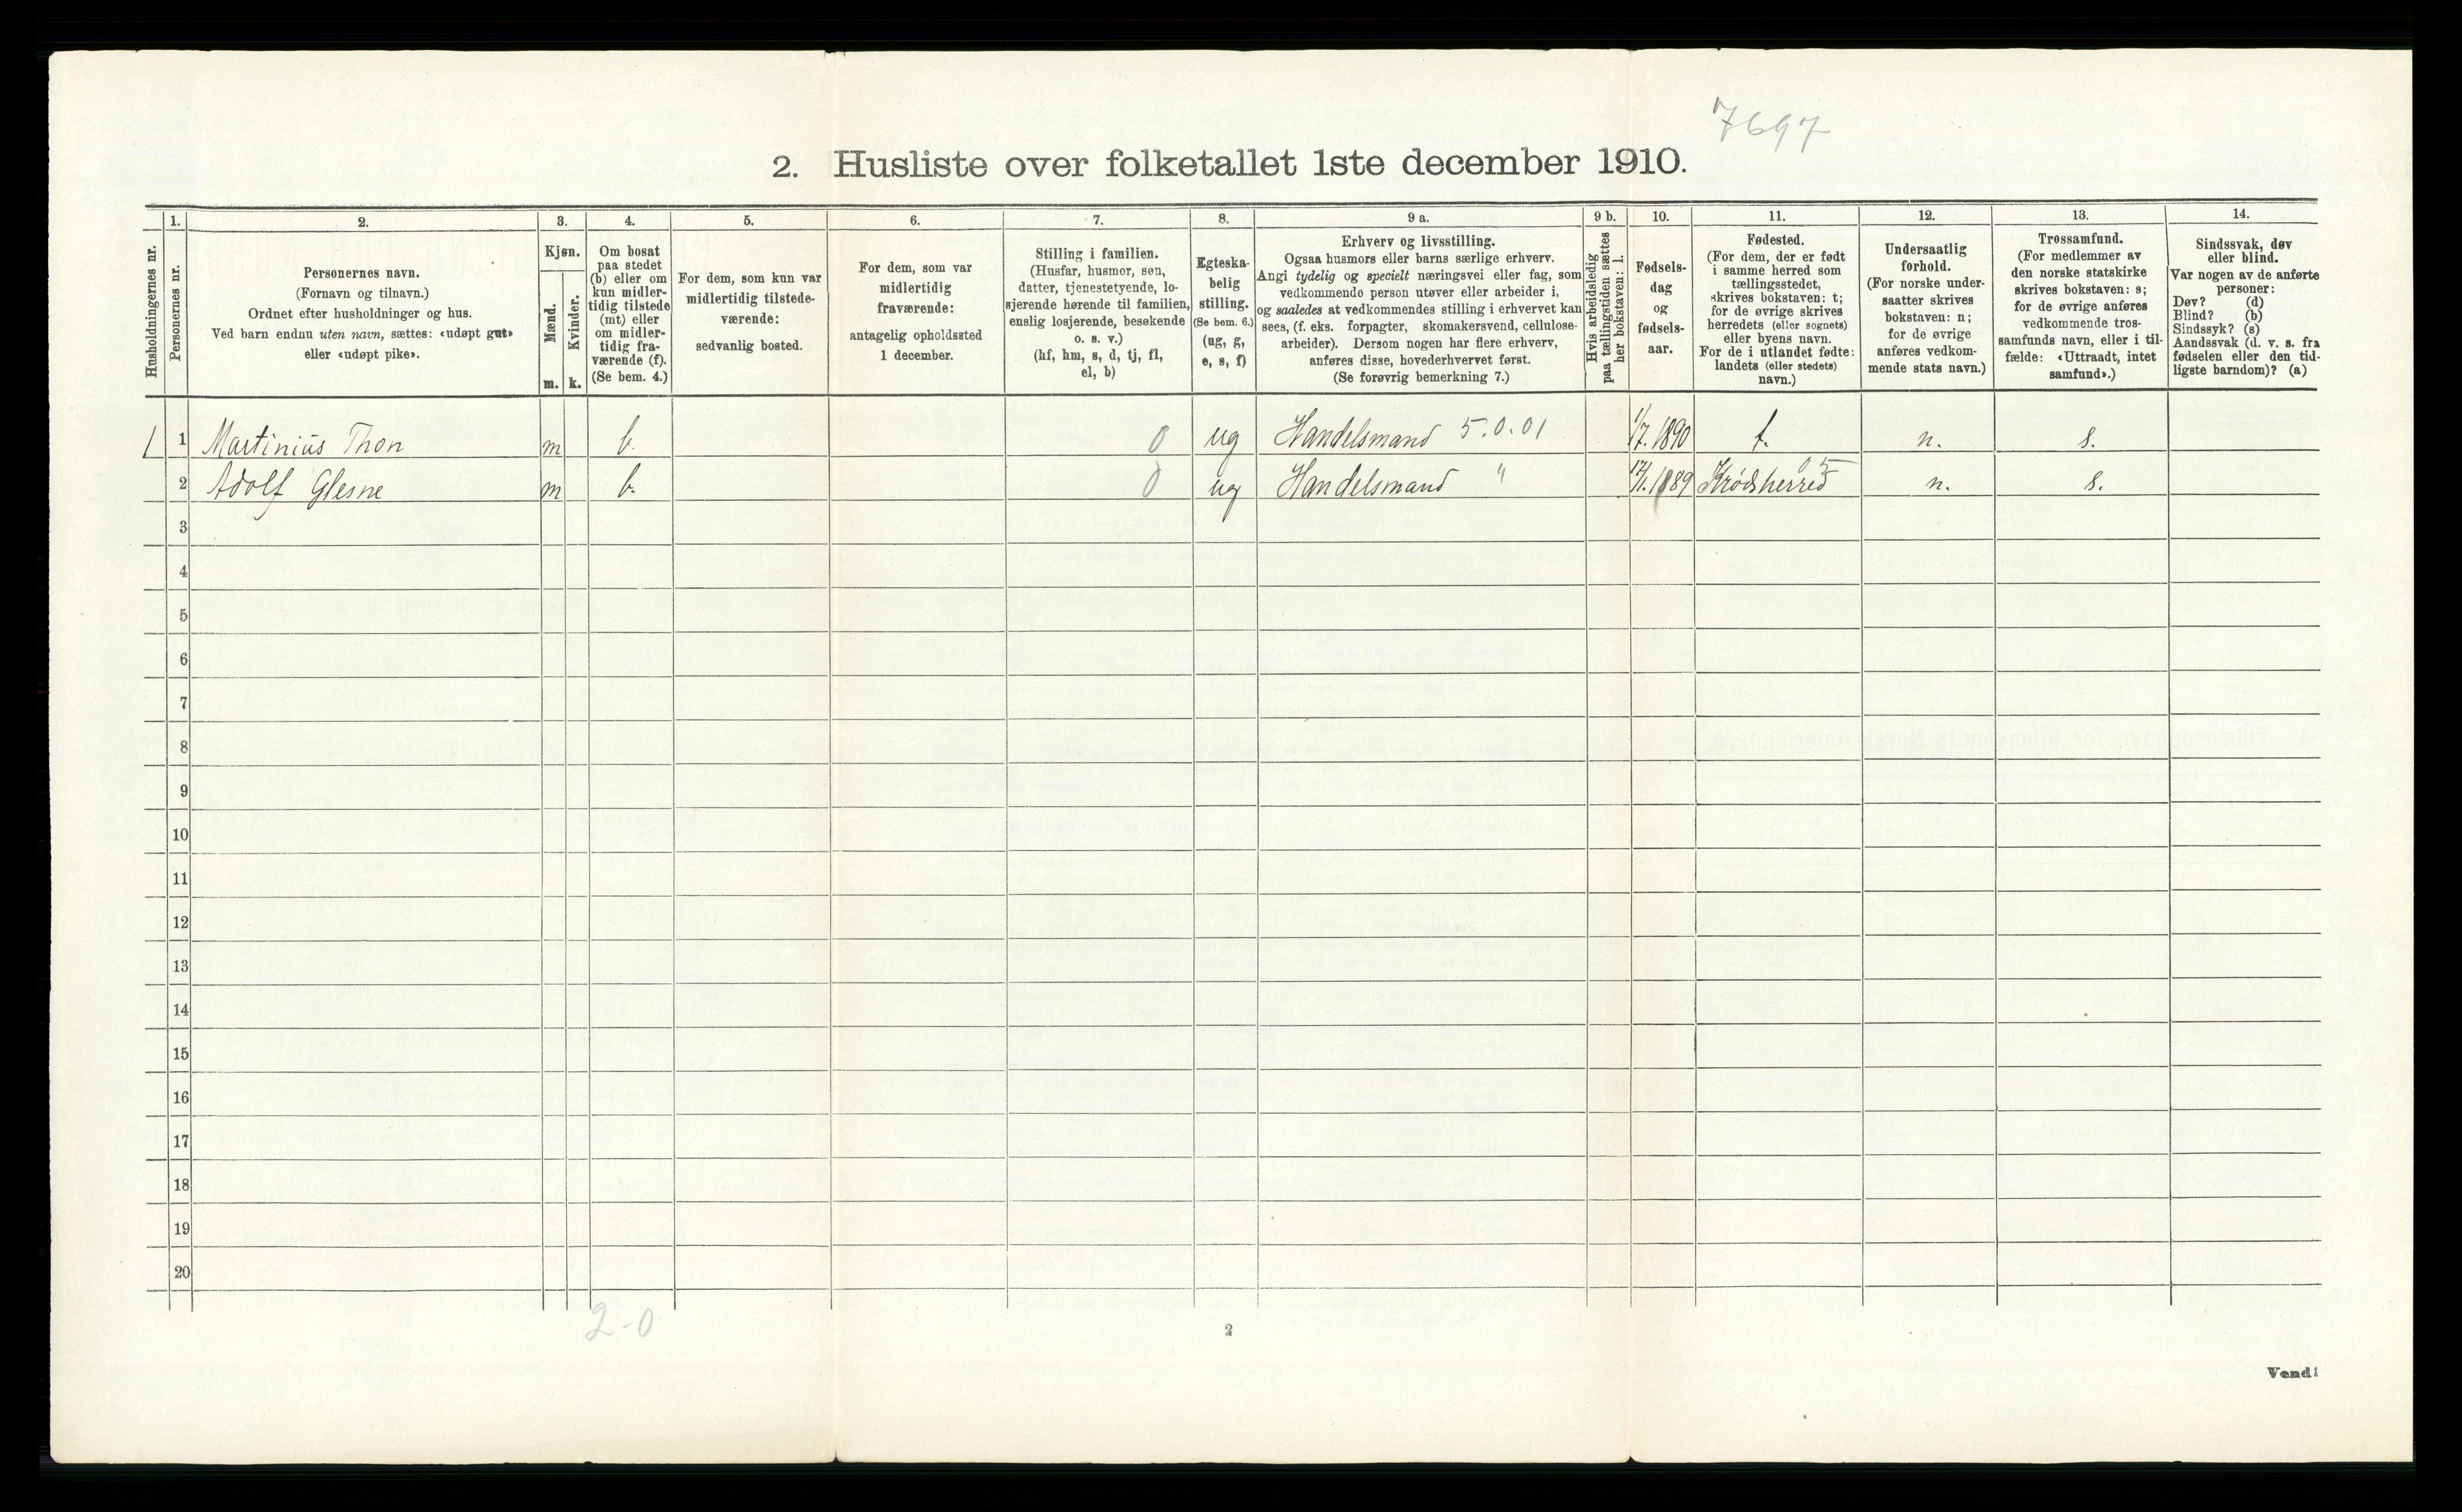 7697
2. Husliste over folketallet 1ste december 1910.
Husholdningernes nr.
1.
Personernes nr.
2.
Personernes navn.
(Fornavn og tilnavn.)
Ordnet efter husholdninger og hus.
Ved barn endnu uten navn, sættes: «udøpt gut»
eller «udøpt pike».
3.
Kjøn.
Mænd.
Kvinder.
m. k.
4.
Om bosat
paa stedet
(b) eller om
kun midler-
tidig tilstede
(mt) eller
om midler-
tidig fra-
værende (f).
(Se bem. 4.)
5.
For dem, som kun var
midlertidig tilstede-
værende:
sedvanlig bosted.
6.
For dem, som var
midlertidig
fraværende:
antagelig opholdssted
1 december.
7.
Stilling i familien.
(Husfar, husmor, søn,
datter, tjenestetyende, lo-
sjerende hørende til familien,
enslig losjerende, besøkende
o. s. v.)
(hf, hm, s, d, tj, fl,
el, b)
8.
Egteska-
belig
stilling.
(Se bem. 6.)
(ug, g,
e, s, f)
9 a.
Erhverv og livsstilling.
Ogsaa husmors eller barns særlige erhverv.
Angi tydelig og specielt næringsvei eller fag, som
vedkommende person utøver eller arbeider i,
og saaledes at vedkommendes stilling i erhvervet kan
sees, (f. eks. forpagter, skomakersvend, cellulose-
arbeider). Dersom nogen har flere erhverv,
anføres disse, hovederhvervet først.
(Se forøvrig bemerkning 7.)
9 b.
Hvis arbeidsledig
paa tællingstiden sættes
her bokstaven: l.
10.
Fødsels-
dag
og
fødsels-
aar.
11.
Fødested.
(For dem, der er født
i samme herred som
tællingsstedet,
skrives bokstaven: t;
for de øvrige skrives
herredets (eller sognets)
eller byens navn.
For de i utlandet fødte:
landets (eller stedets)
navn.)
12.
Undersaatlig
forhold.
(For norske under-
saatter skrives
bokstaven: n;
for de øvrige
anføres vedkom-
mende stats navn.)
13.
Trossamfund.
(For medlemmer av
den norske statskirke
skrives bokstaven: s;
for de øvrige anføres
vedkommende tros-
samfunds navn, eller i til-
fælde: «Uttraadt, intet
samfund».)
14.
Sindssvak, døv
eller blind.
Var nogen av de anførte
personer:
Døv? (d)
Blind? (b)
Sindssyk? (s)
Aandssvak (d. v. s. fra
fødselen eller den tid-
ligste barndom)? (a)
1 1 Martinius Thon m b. 0 ug Handelsmand 5.0.01 1/7.1890 t. n. s.
2 Adolf Glesne m b. 0 ug Handelsmand " 17/1.1889 Krødsherred 05 n. s.
3
4
5
6
7
8
9
10
11
12
13
14
15
16
17
18
19
20
2-0
2
Vend!